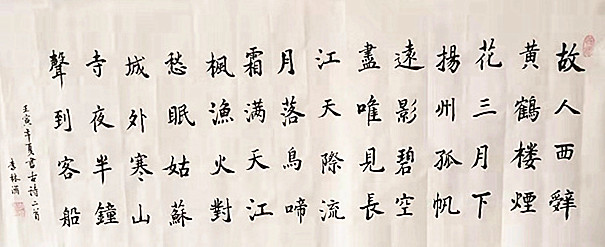 故人西辭
黄鶴楼煙
花三月下
揚州孤帆
遠影碧空
盡唯見長
江天際流
月落烏啼
霜满天江
楓漁火對
愁眠姑蘇
城外寒山
寺夜半鐘
聲到客船
壬寅年夏書古詩二首